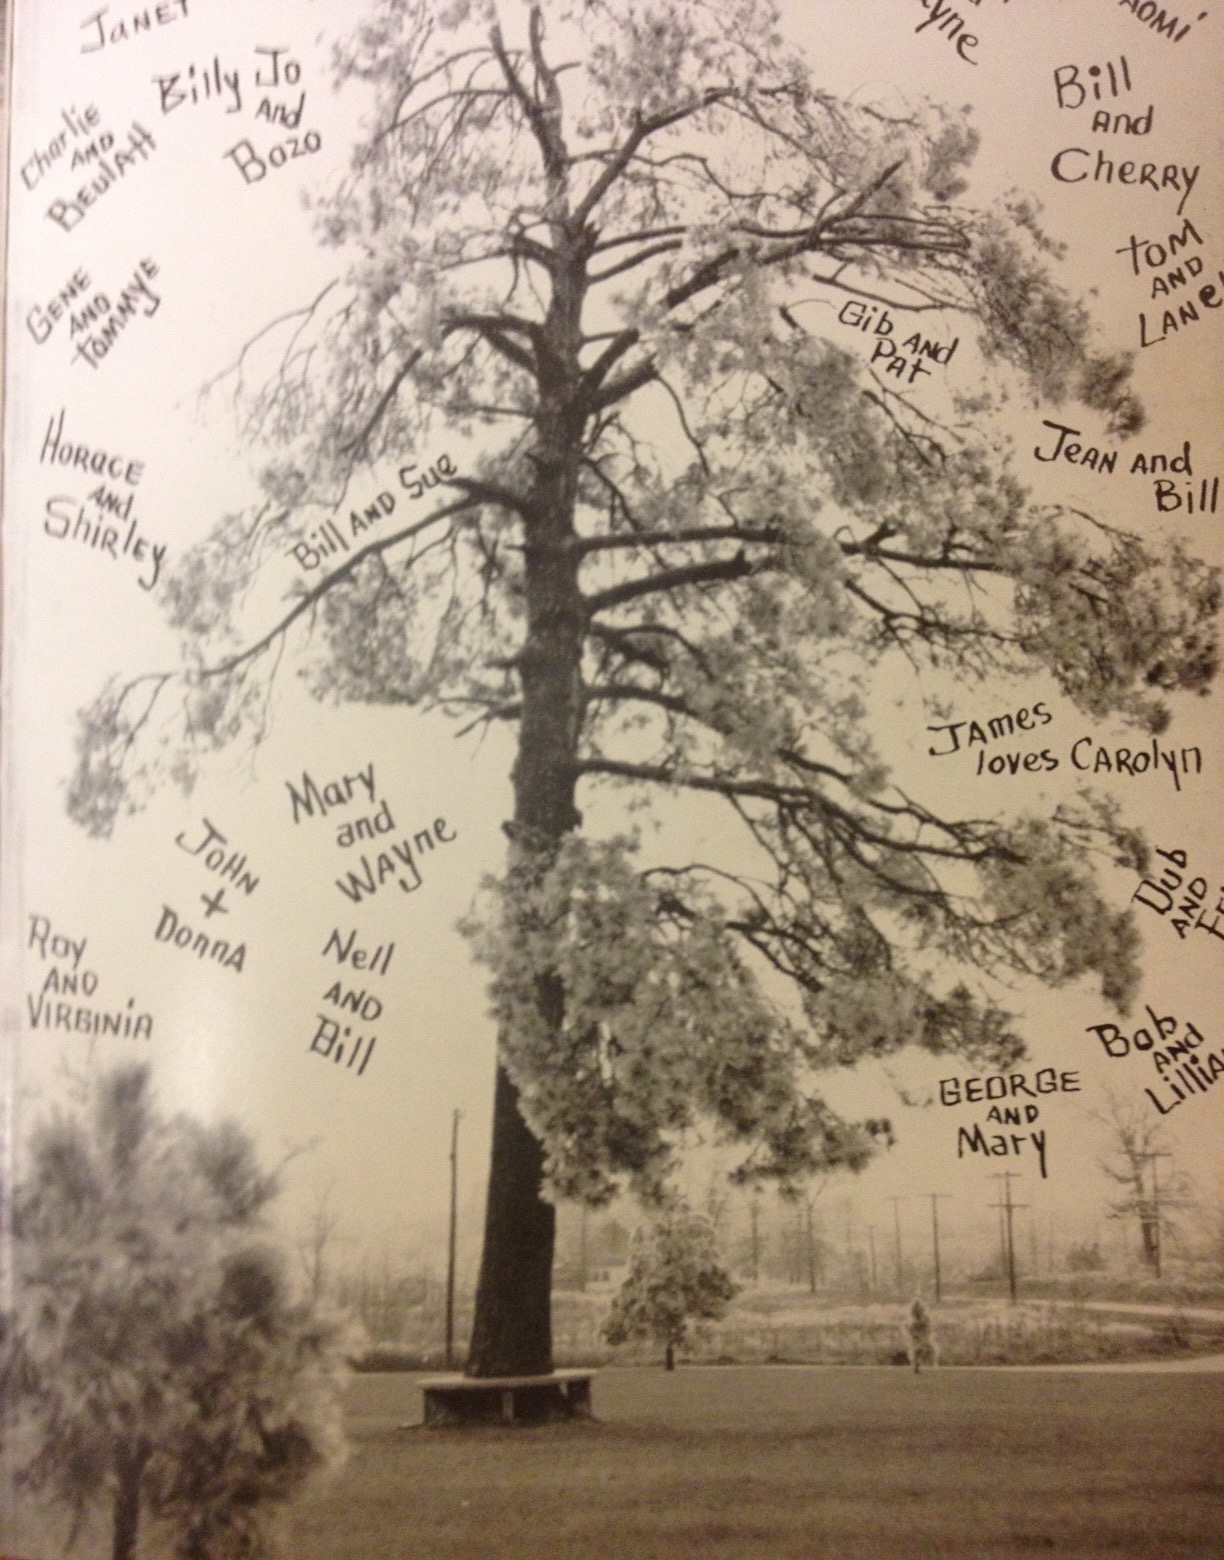 JANET
Billy Jo
And
Bozo
Charlie
AND
BeulAH
GENE
AND
TOMMYE
HORACE
AND
SHIRLEY
Bill AND Sue
Mary
and
WAYNE
JOHN
+
DONNA
Roy
AND
VIRGINIA
Nell
AND
Bill
Bill
And
CHERRY
TOM
AND
Gib AND
PAT
JEAN AND
Bill
JAMES
loves CAROLYN
Dub
AND
Bob
AND
GEORGE
AND
Mary